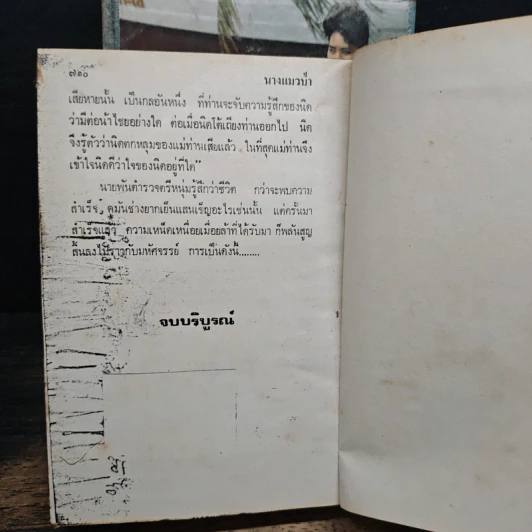 ๗๑๐
นางแมวป่า
เสียหายนั้น เป็นกลอันหนึ่ง ที่ท่านจะจับความรู้สึกของนิด
ว่ามีต่อน้าไชยอย่างใด ต่อเมื่อนิดโต้เถียงท่านออกไป นิด
จึงรู้ตัวว่านิดตกหลุมของแม่ท่านเสียแล้ว ในที่สุดแม่ท่านจึง
เข้าใจนิดดีว่าใจของนิดอยู่ที่ใด"
นายพันตำรวจตรีหนุ่มรู้สึกว่าชีวิต กว่าจะพบความ
สำเร็จ ดูมันช่างยากเย็นแสนเข็ญอะไรเช่นนั้น แต่ครั้นมา
สำเร็จแล้ว ความเหน็ดเหนื่อยเมื่อยล้าที่ได้รับมา ก็พลันสูญ
สิ้นลงไปราวกับมหัศจรรย์ การเป็นดังนี้........
จบบริบูรณ์